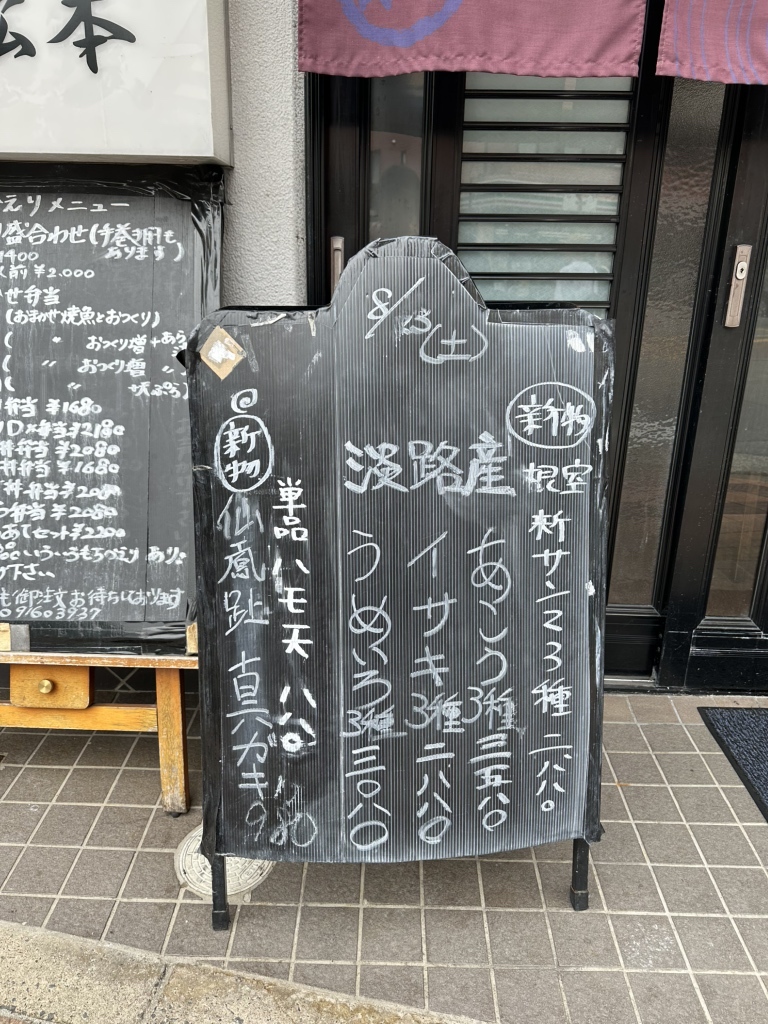 松本
えりメニュー
盛合わせ(手巻き用も
あります)
1400
人前 ¥2.000
せ弁当
(おまかせ焼魚とおつくり)
( 〃 おつくり増+あら
( 〃 おつくり増 〃
( 〃 天ぷら)
弁当 ¥1680
弁当¥2180
弁当 ¥2080
弁当 ¥1680
弁当¥2080
弁当¥2080
あてセット¥2200
下さい
も御注文お待ちしております
091603937
8/13(土)
新物
根室
新サンマ3種 二八八〇
淡路産
あこう3種 三五八〇
イサキ3種 二八八〇
うめいろ3種 三〇八〇
単品ハモ天 八八〇
@
新物
仙鳳趾 真ガキ 980